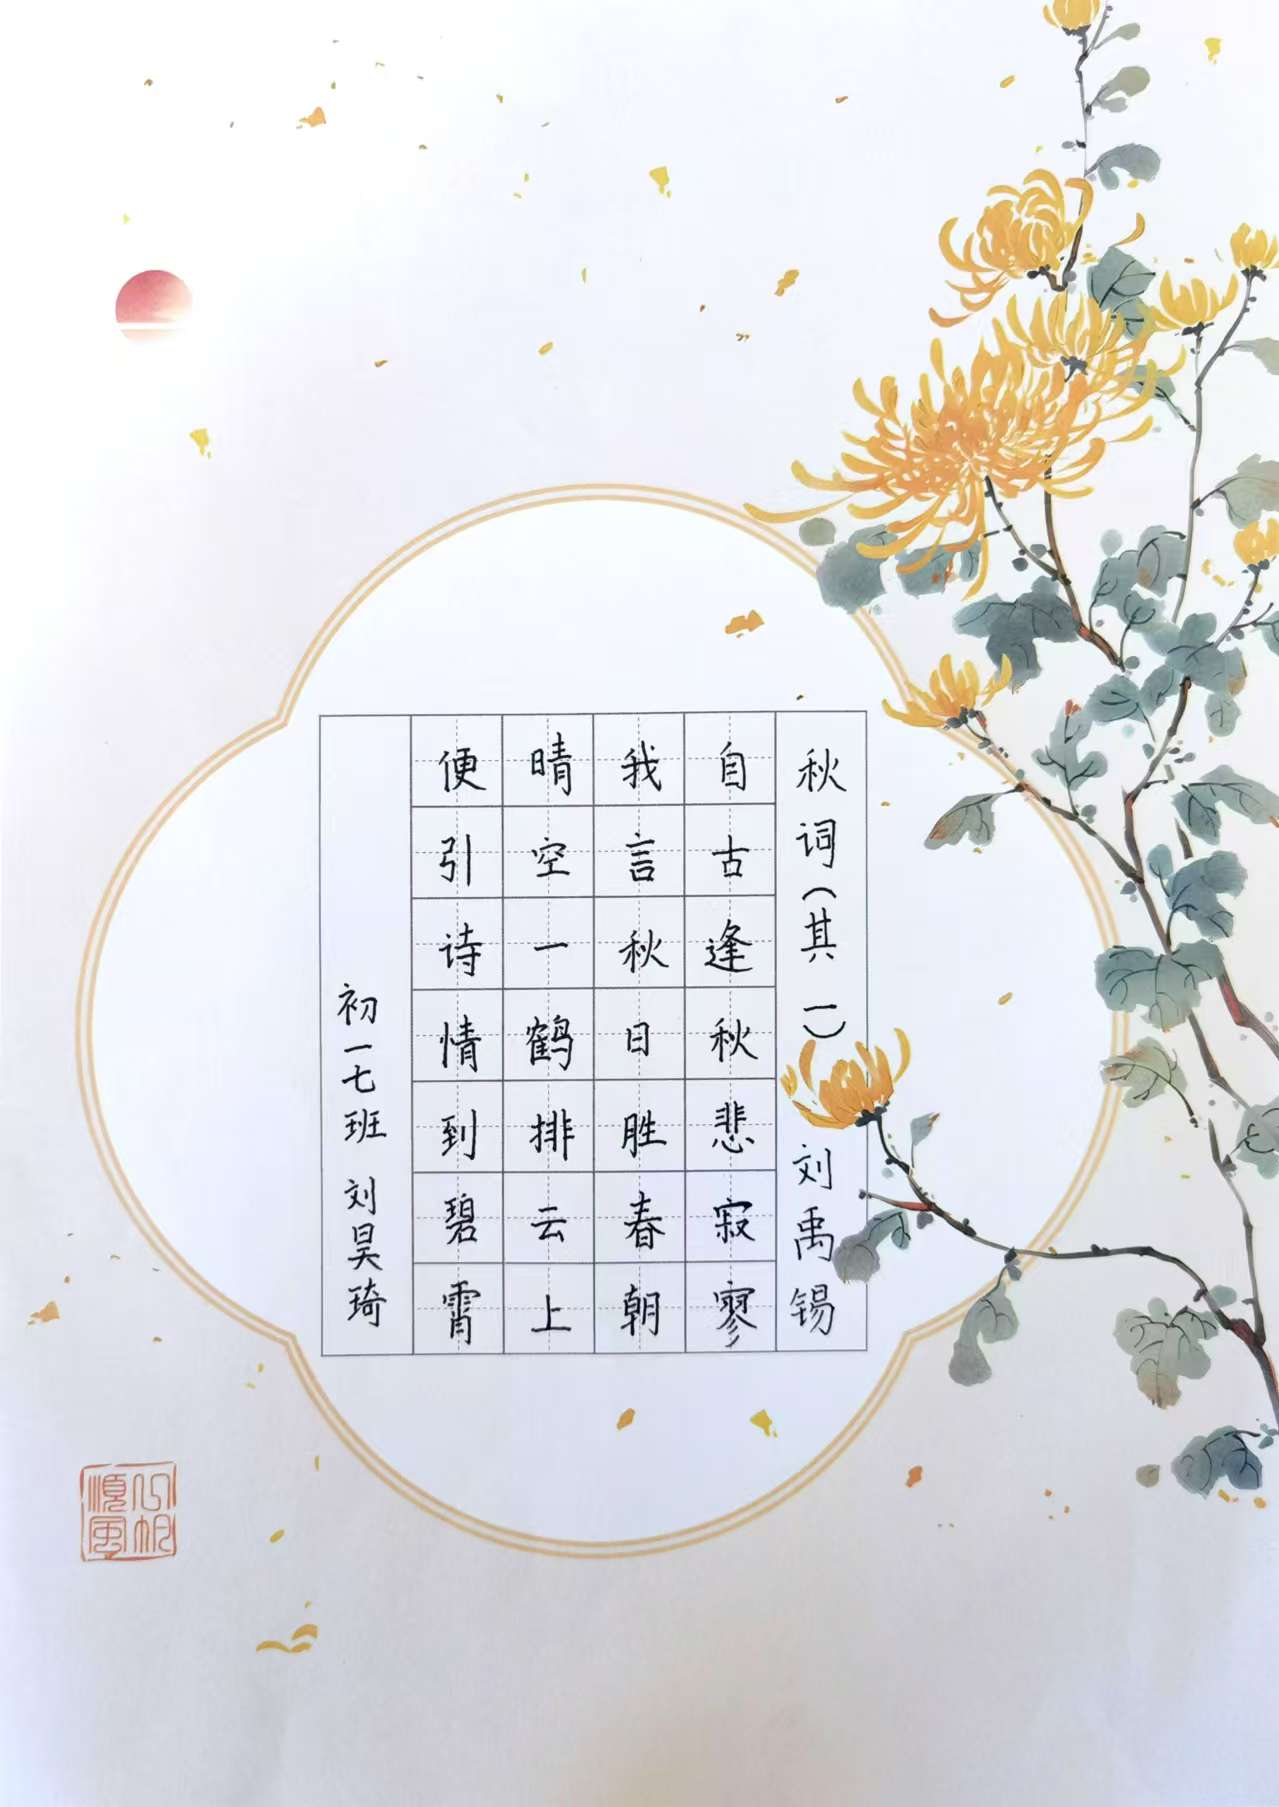 秋词(其一) 刘禹锡
自古逢秋悲寂寥
我言秋日胜春朝
晴空一鹤排云上
便引诗情到碧霄
初一七班 刘昊琦